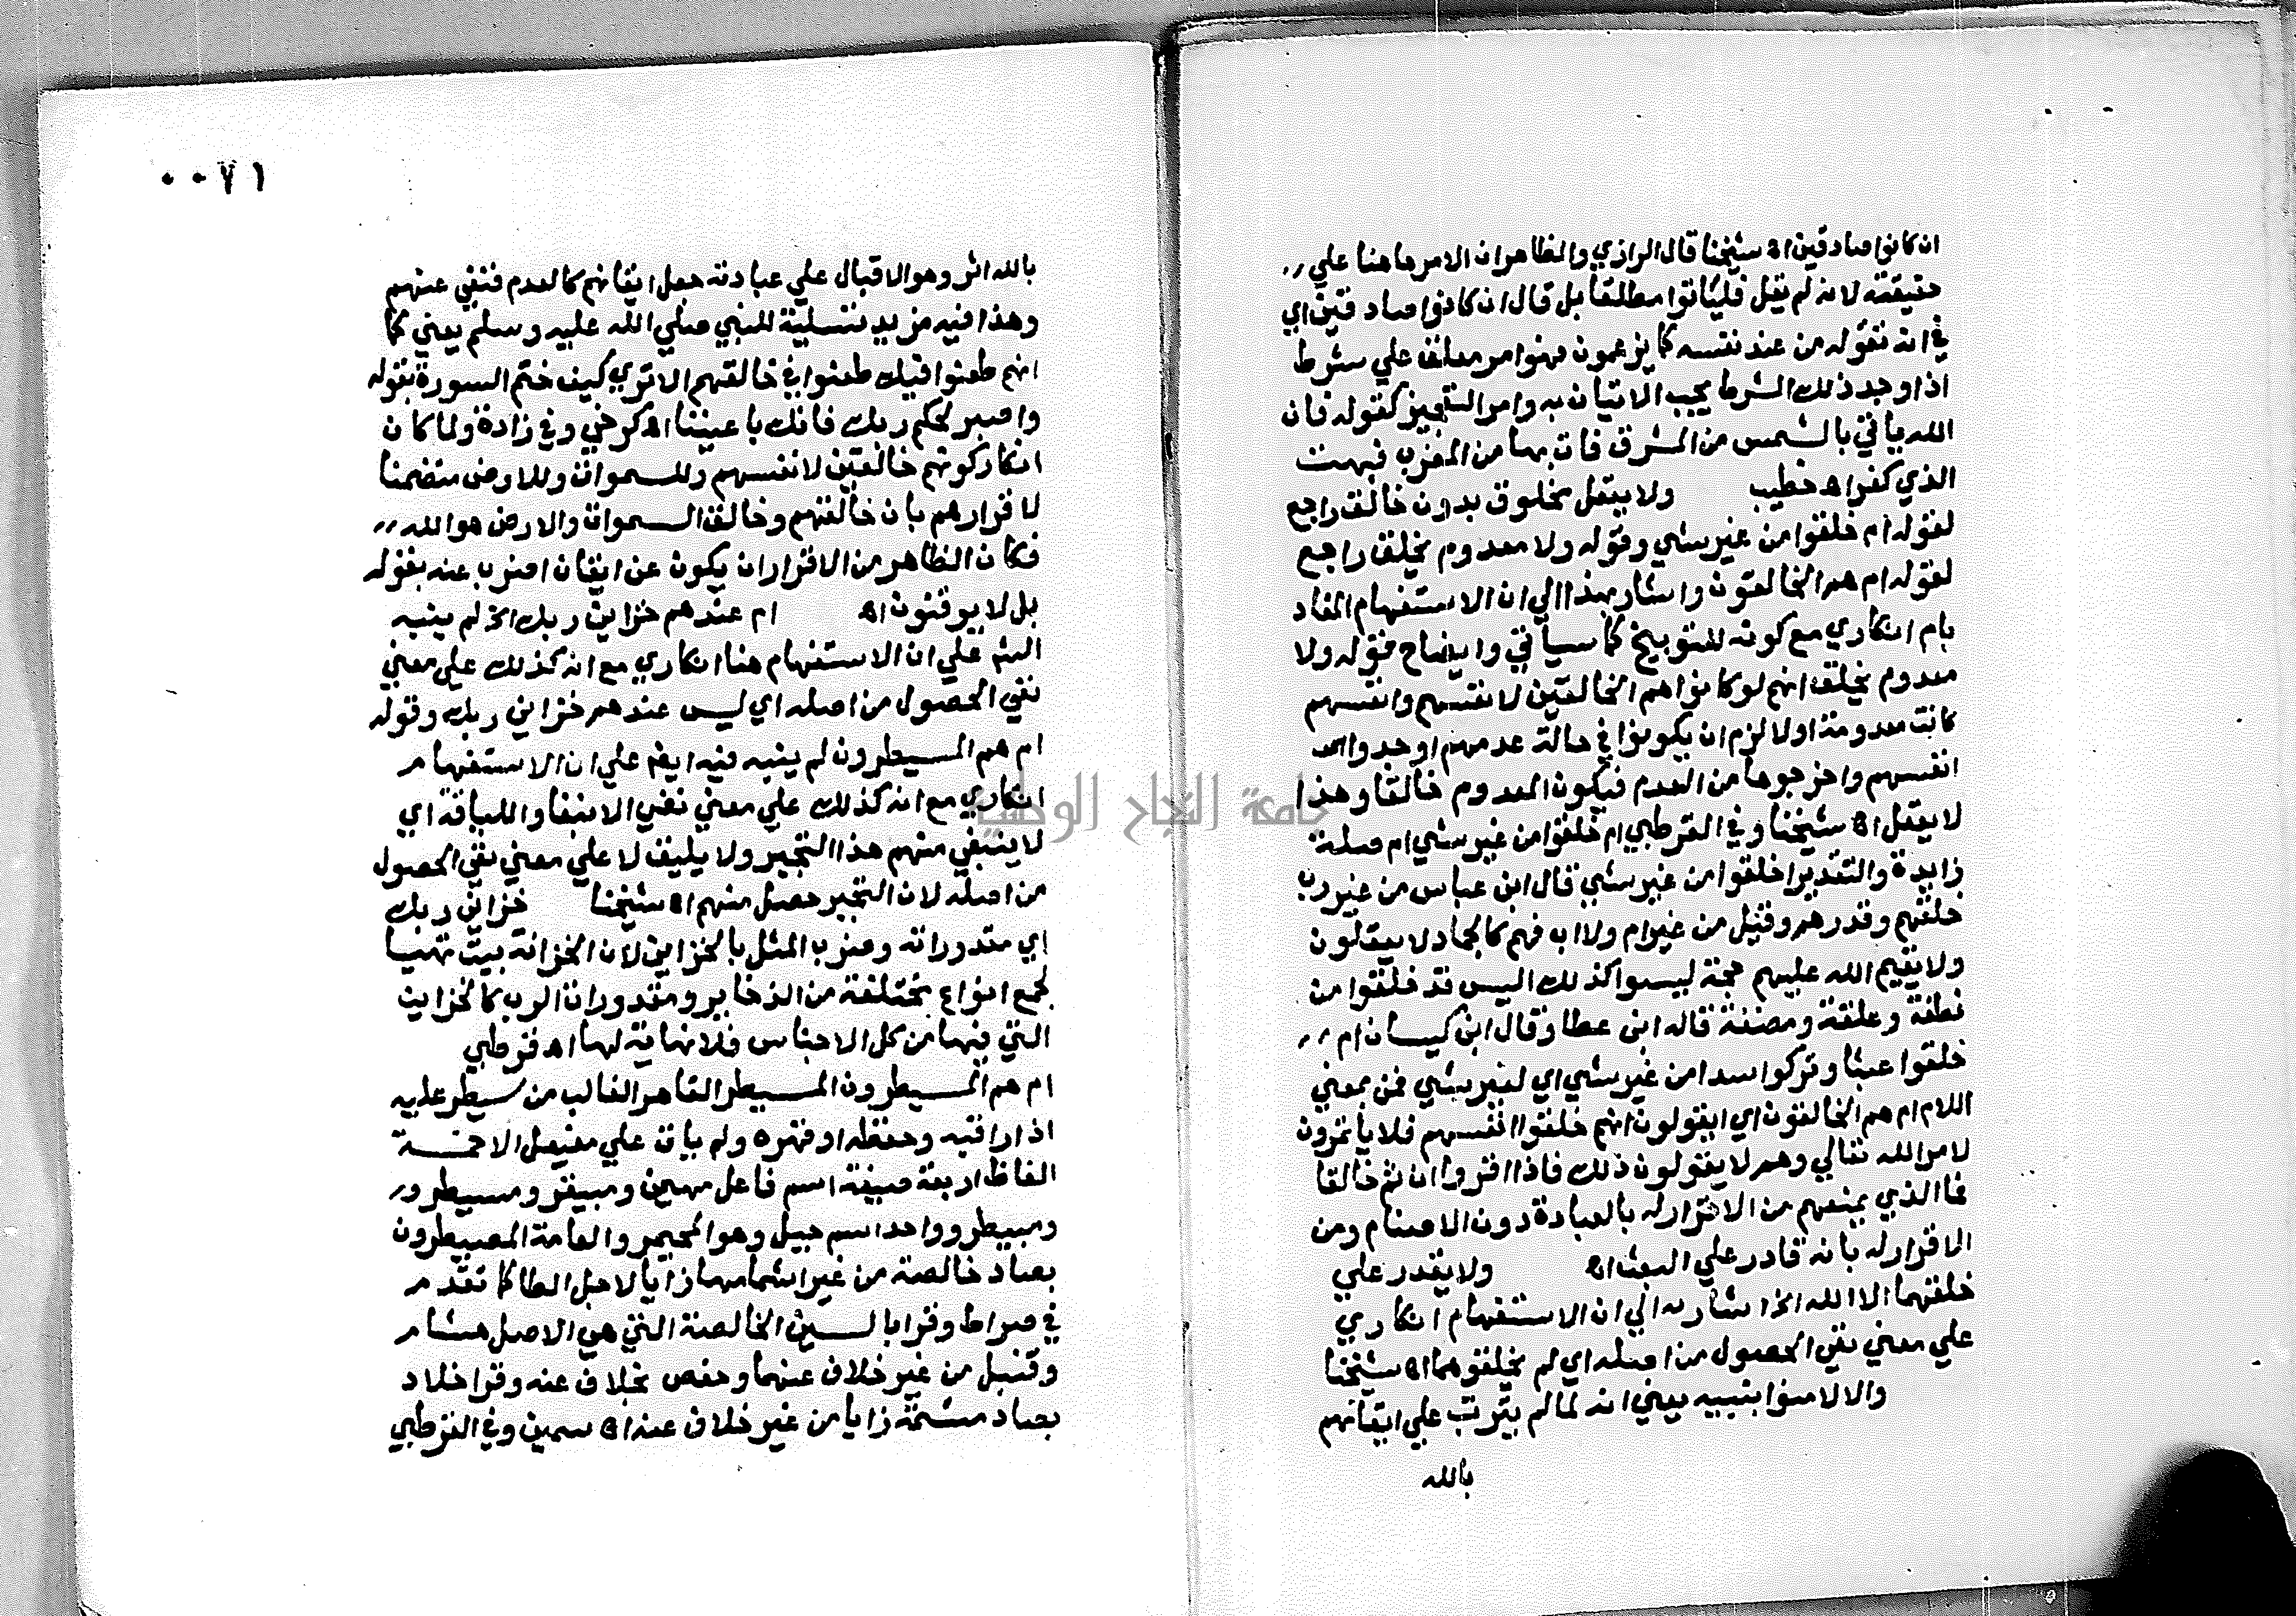 ان كانوا صادقين اه شيخنا قال الرازي والظاهر ان الامر هاهنا علي
حقيقته لانه لم يقل فليأتوا مطلقا بل قال ان كانوا صادقين اي
في انه تقوله من عند نفسه كما يزعمون فهو امر معلق علي شرط
اذا وجد ذلك الشرط يجب الاتيان به وامر التعجيز كقوله فان
الله يأتي بالشمس من المشرق فات بها من المغرب فبهت
الذي كفر اه خطيب ولا يعقل مخلوق بدون خالق راجع
لقوله ام خلقوا من غير شي وقوله ولا معدوم يخلق راجع
لقوله ام هم الخالقون واشار بهذا الي ان الاستفهام المفاد
بام انكاري مع كونه للتوبيخ كما سيأتي وايضاح قوله ولا
معدوم يخلق انهم لو كانوا هم الخالقين لانفسهم وانفسهم
كانت معدومة اولا لزم ان يكونوا في حالة عدمهم اوجدوا
انفسهم واخرجوها من العدم فيكون المعدوم خالقا وهذا
لا يعقل اه شيخنا وفي القرطبي ام خلقوا من غير شي ام صلة
زايدة والتقدير اخلقوا من غير شي قال ابن عباس من غير رب
خلقهم وقدرهم وقيل من غير ام ولا اب فهم كالجماد لا يعقلون
ولا يقيم الله عليهم حجة ليسوا كذلك اليس قد خلقوا من
نطفة وعلقة ومضغة قاله ابن عطا وقال ابن كيسان ام
خلقوا عبثا وتركوا سدا من غير شي اي لغير شي فمن بمعني
اللام ام هم الخالقون اي ايقولون انهم خلقوا انفسهم فلا يأتمرون
لامر الله تعالي وهم لا يقولون ذلك فاذا اقروا ان ثم خالقا
فما الذي يمنعهم من الاقرار له بالعبادة دون الاصنام ومن
الاقرار له بانه قادر علي البعث اه ولا يقدر علي
خلقهما الا الله الخ اشار به الي ان الاستفهام انكاري
علي معني نفي الحصول من اصله اي لم يخلقوهما اه شيخنا
والا لامنوا بنبيه يعني انه لما لم يترتب علي ايقانهم
بالله
٠٠٧١
بالله اثر وهو الاقبال علي عبادته جعل ايقانهم كالعدم فنفي عنهم
وهذا فيه مزيد تسلية للنبي صلي الله عليه وسلم يعني كما
انهم طعنوا فيك طعنوا في خالقهم الا تري كيف ختم السورة بقوله
واصبر لحكم ربك فانك باعيننا اه كرخي وفي زادة ولما كان
انكار كونهم خالقين لانفسهم وللسموات وللارض متضمنا
لاقرارهم بان خالقهم وخالق السموات والارض هو الله
فكان الظاهر من الاقرار ان يكون عن ايقان اضرب عنه بقوله
بل لا يوقنون اه ام عندهم خزاين ربك الخ لم ينبه
الشم علي ان الاستفهام هنا انكاري مع انه كذلك علي معني
نفي الحصول من اصله اي ليس عندهم خزاين ربك وقوله
ام هم المسيطرون لم ينبه فيه ايضم علي ان الاستفهام
انكاري مع انه كذلك علي معني نفي الانبغا واللياقة اي
لا ينبغي منهم هذا التجبر ولا يليق لا علي معني نفي الحصول
من اصله لان التجبر حصل منهم اه شيخنا خزاين ربك
اي مقدوراته وضرب المثل بالخزاين لان الخزانة بيت تهيا
لجمع انواع مختلفة من الذخاير ومقدورات الرب كالخزاين
التي فيها من كل الاجناس فلا نهاية لها اه قرطبي
ام هم المسيطرون المسيطر القاهر الغالب من سيطر عليه
اذا راقبه وحفظه او قهره ولم يات علي مفيعل الا خمسة
الفاظ اربعة صيغة اسم فاعل مهيمن ومبيقر ومسيطر
ومبيطر وواحد اسم جبل وهو المجيمر والعامة المصيطرون
بصاد خالصة من غير اشمامها زايا لاجل الطا كما تقدم
في صراط وقرا بالسين الخالصة التي هي الاصل هشام
وقنبل من غير خلاف عنهما وحفص بخلاف عنه وقرا خلاد
بصاد مشمة زايا من غير خلاف عنه اه سمين وفي القرطبي
جامعة النجاح الوطنية